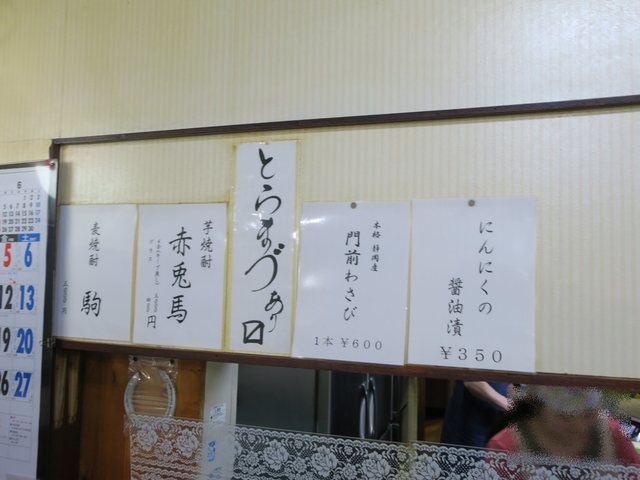 にんにくの
醤油漬
¥350
本場 静岡産
門前わさび
1本 ¥600
とらまづあり〼
芋焼酎
赤兎馬
グラス
円
麦焼酎
駒
円
6
5 6
12 13
19 20
26 27